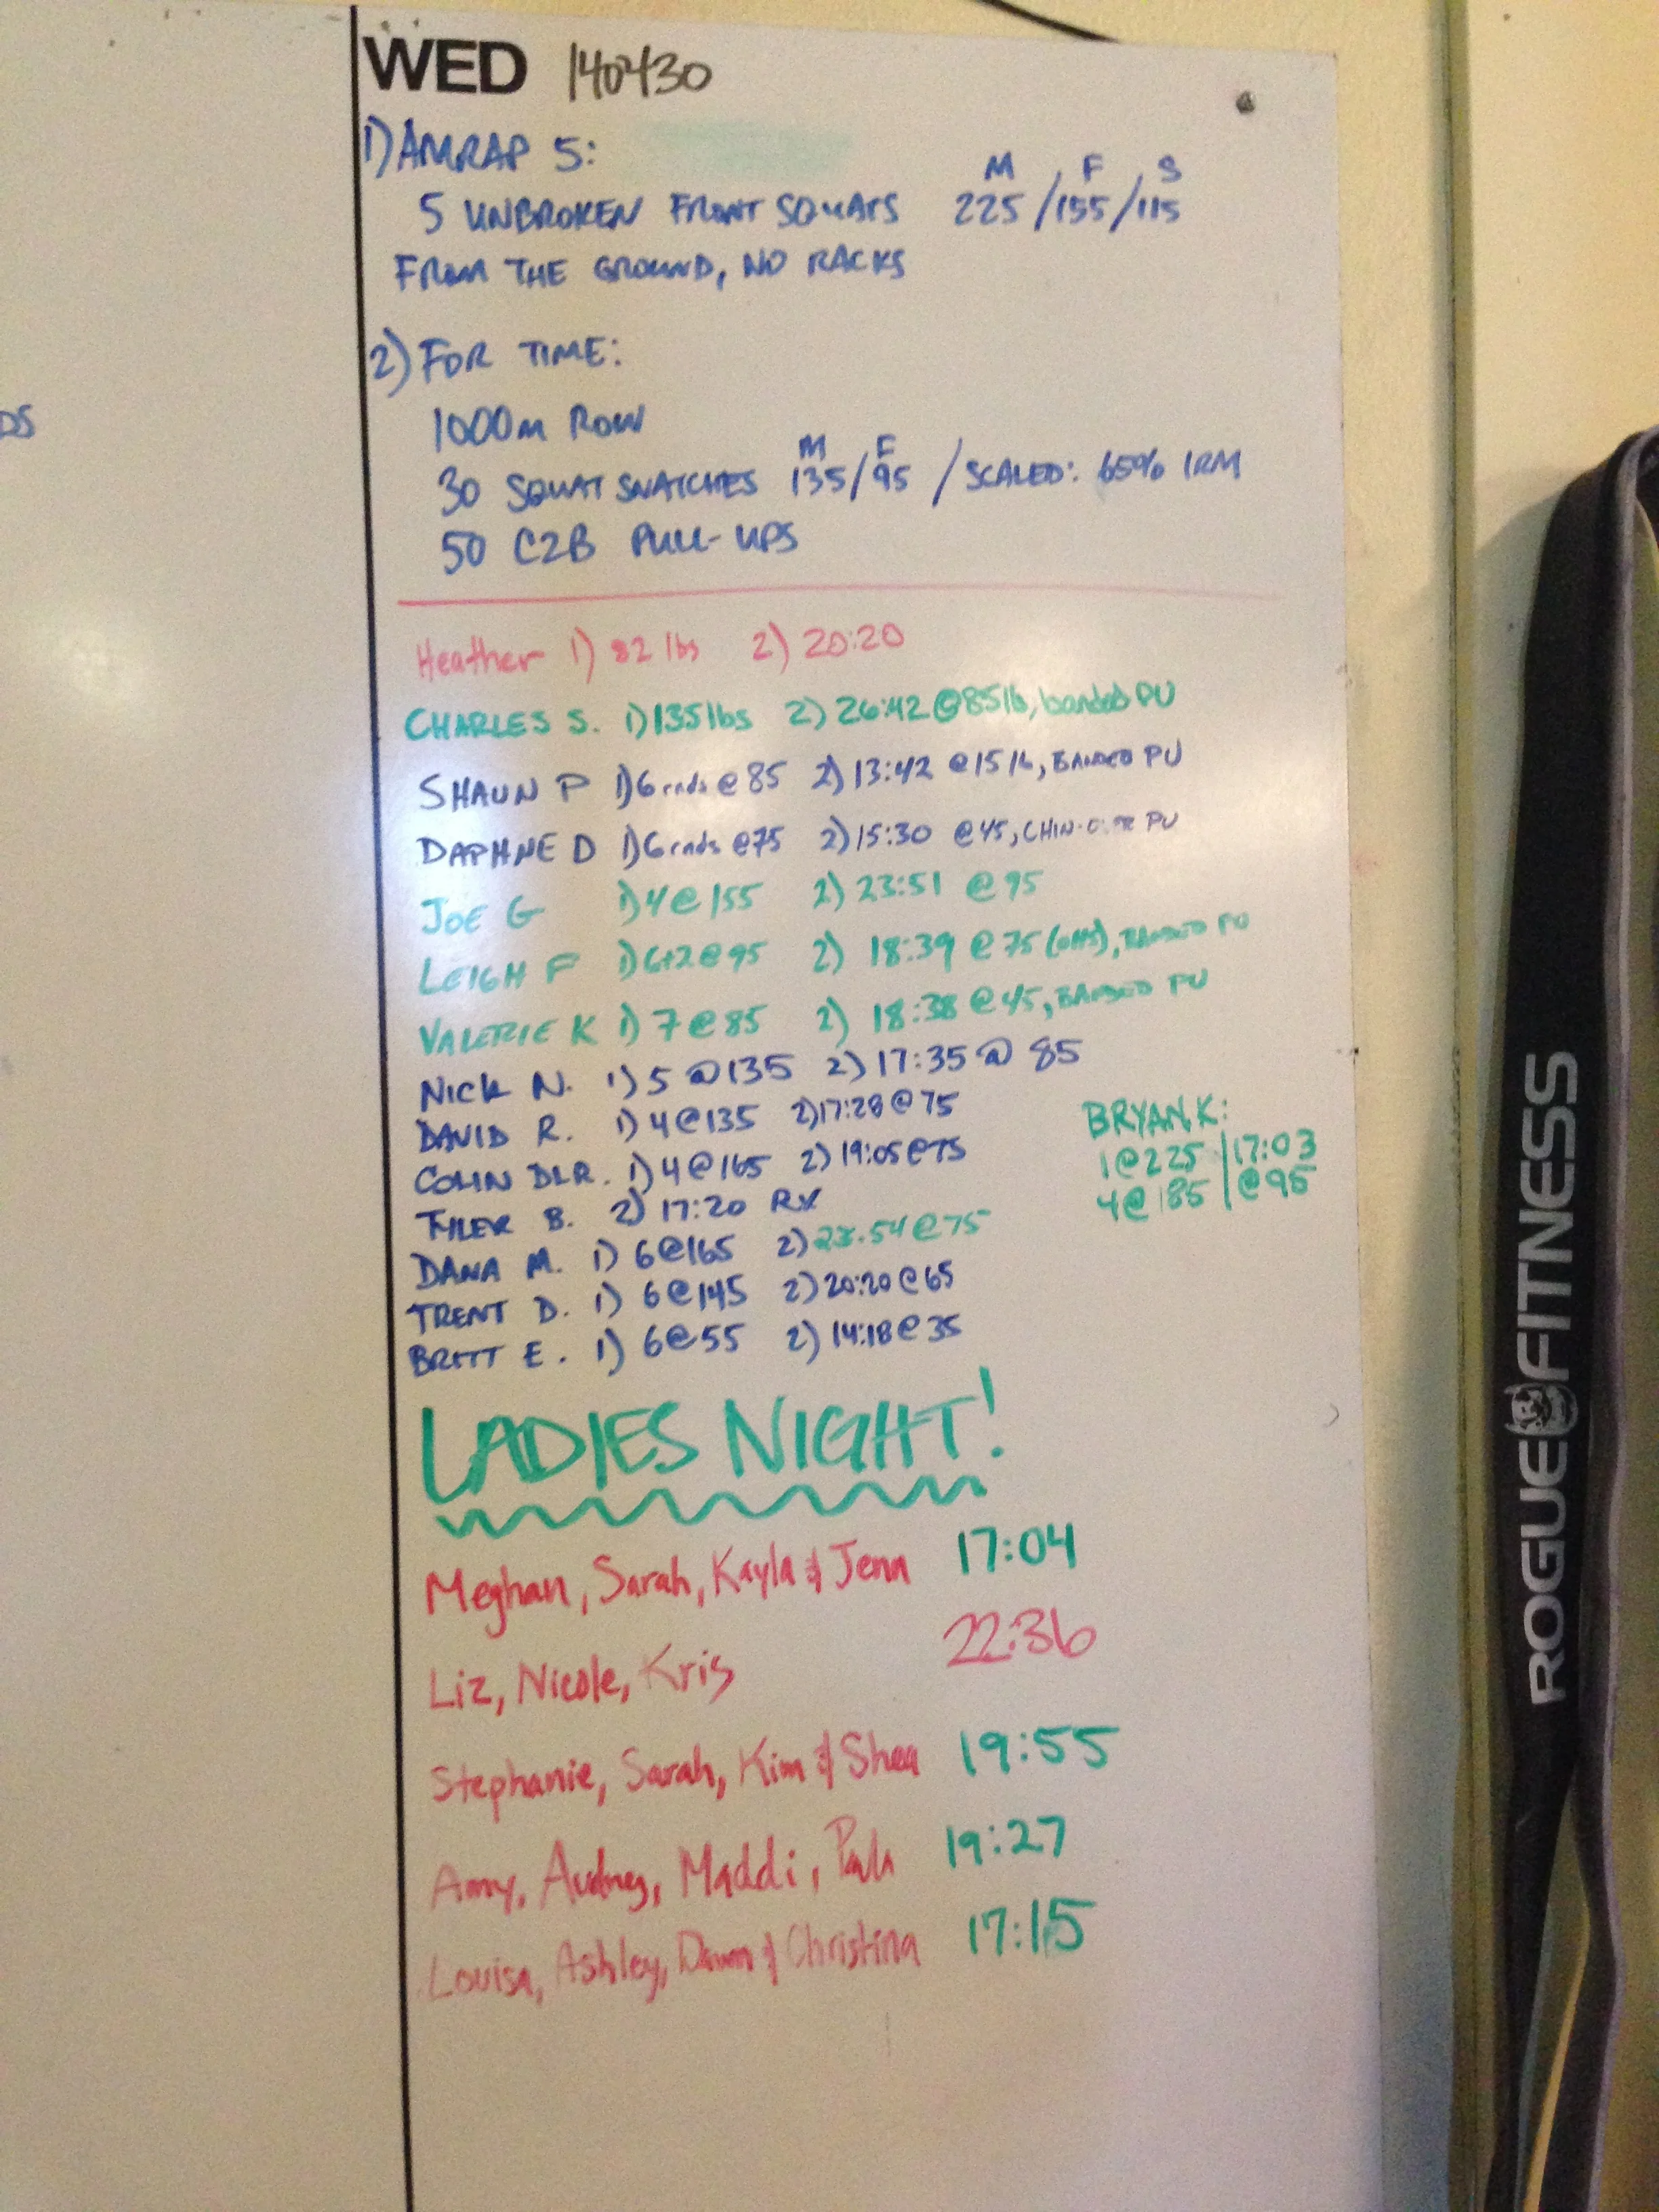 WED 140430
1) AMRAP 5:
M F S
5 UNBROKEN FRONT SQUATS 225 / 155 / 115
FROM THE GROUND, NO RACKS
2) FOR TIME:
1000m ROW
M F
30 SQUAT SNATCHES 135/95 / SCALED: 65% 1RM
50 C2B PULL-UPS
Heather 1) 82 lbs 2) 20:20
CHARLES S. 1) 135 lbs 2) 26:42 @ 85 lb, banded PU
SHAUN P 1) 6 rnds @ 85 2) 13:42 @ 15 lb, BANDED PU
DAPHNE D 1) 6 rnds @75 2) 15:30 @ 45, CHIN-OVER PU
JOE G 1) 4 @ 155 2) 23:51 @ 95
LEIGH F 1) 6+2 @ 95 2) 18:39 @ 75 (OHS), BANDED PU
VALERIE K 1) 7 @ 85 2) 18:38 @ 45, BANDED PU
NICK N. 1) 5 @ 135 2) 17:35 @ 85
DAVID R. 1) 4 @ 135 2) 17:28 @ 75
COLIN DLR. 1) 4 @ 165 2) 19:05 @ 75
TYLER B. 2) 17:20 RX
DANA M. 1) 6@165 2) :54 @ 75
TRENT D. 1) 6@145 2) 20:20 @ 65
BRETT E. 1) 6@55 2) 14:18 @ 35
BRYAN K:
1@225 | 17:03
4@185 | @95
LADIES NIGHT!
Meghan, Sarah, Kayla & Jenn 17:04
Liz, Nicole, Kris 22:36
Stephanie, Sarah, Kim & Shea 19:55
Amy, Audrey, Maddi, Paula 19:27
Louisa, Ashley, Dawn & Christina 17:15
DS
ROGUE FITNESS